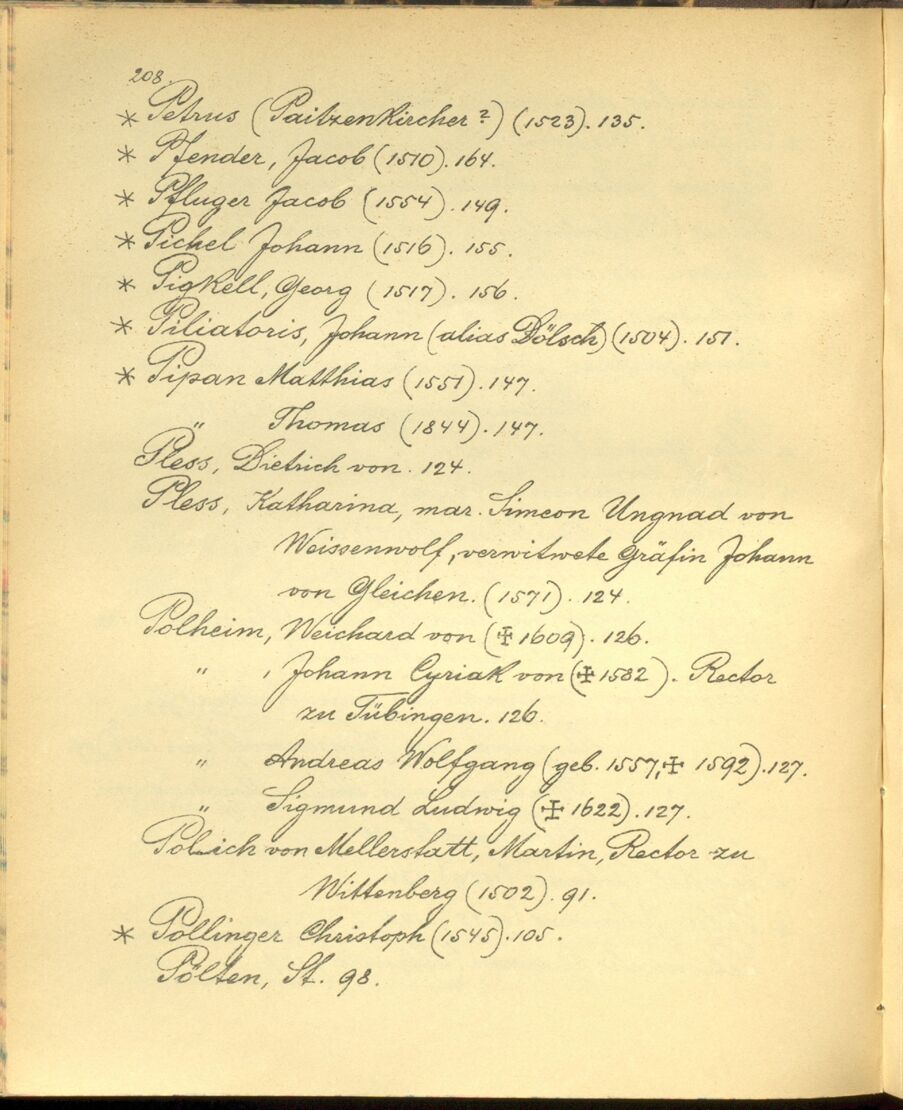 208.
* Petrus (Paitzenkircher?) (1523). 135.
* Pfender, Jacob (1510). 164.
* Pfluger Jacob (1554). 149.
* Pichel Johann (1516). 155.
* Pigkell, Georg (1517). 156.
* Piliatoris, Johann (alias Dölsch) (1504). 151.
* Pipan Matthias (1551). 147.
" Thomas (1844). 147.
Pless, Dietrich von. 124.
Pless, Katharina, mar. Simeon Ungnad von
Weissenwolf, verwitwete Gräfin Johann
von Gleichen. (1571). 124.
Polheim, Weichard von (✠ 1609). 126.
" , Johann Cyriak von (✠ 1582). Rector
zu Tübingen. 126.
" Andreas Wolfgang (geb. 1557, ✠ 1592). 127.
" Sigmund Ludwig (✠ 1622). 127.
Polich von Mellerstatt, Martin, Rector zu
Wittenberg (1502). 91.
* Pollinger Christoph (1545). 105.
Pölten, St. 98.